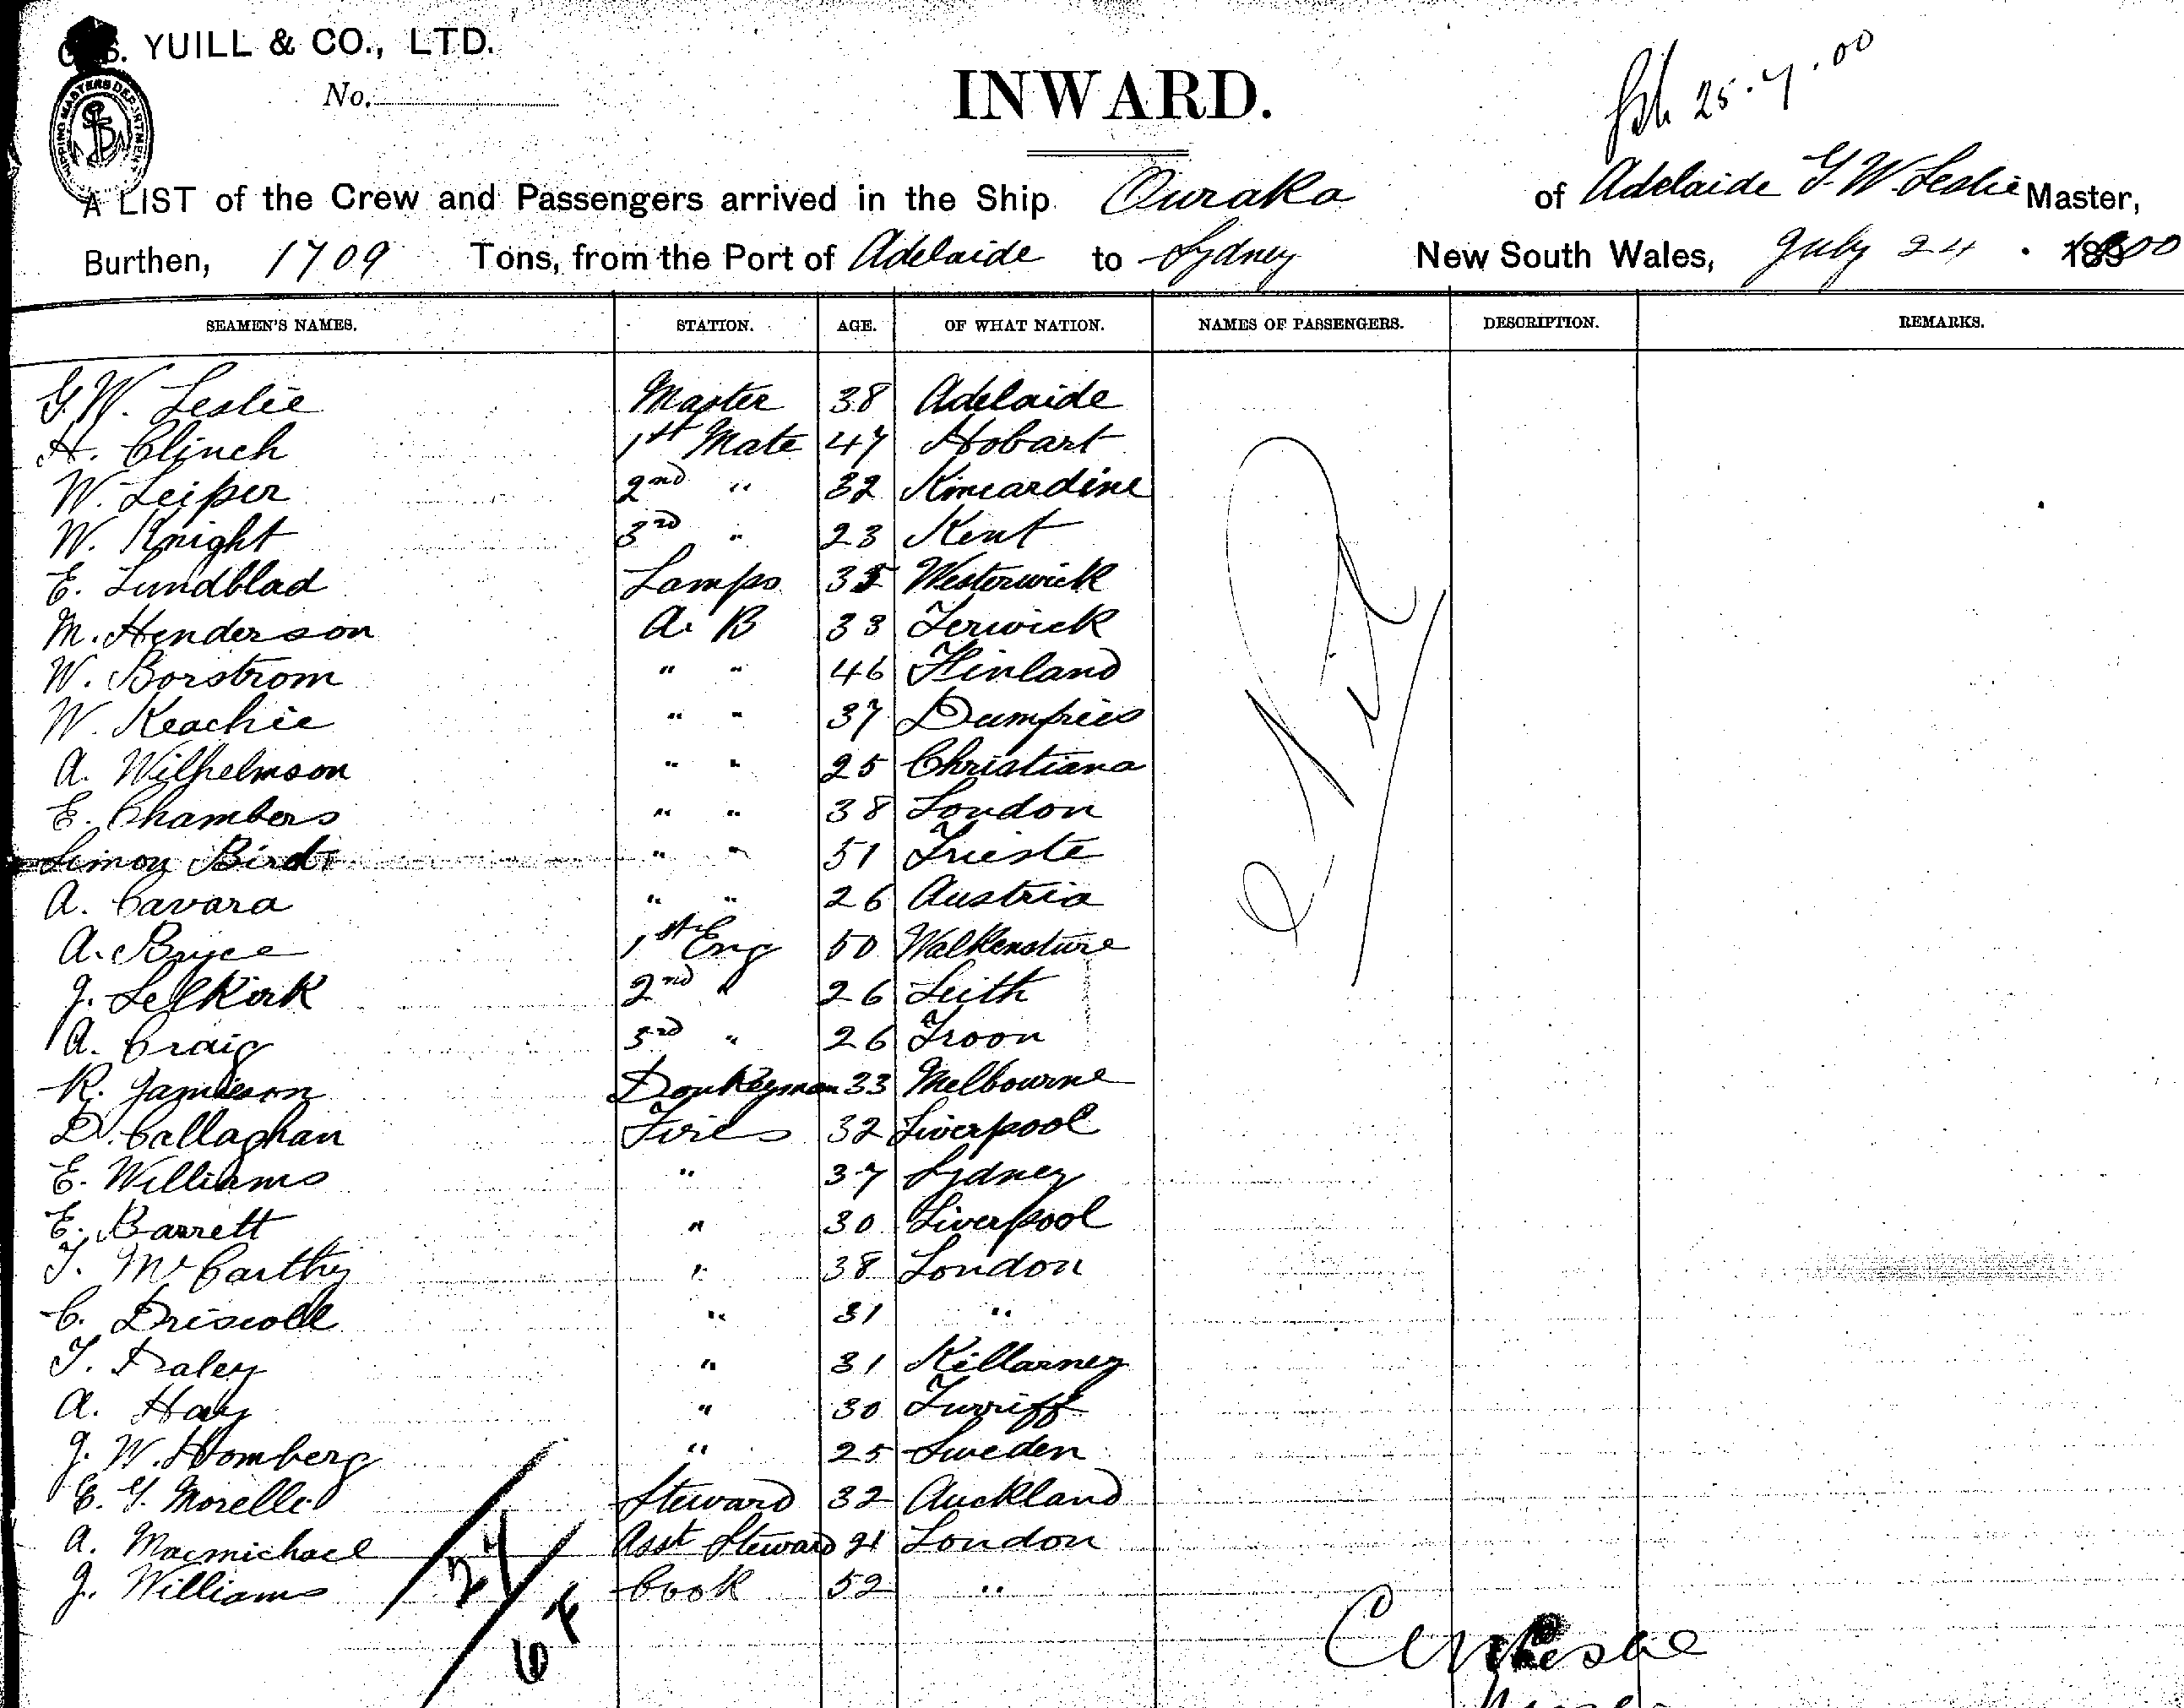 YUILL & CO., LTD.
No.
INWARD.
25.7.00
SHIPPING MASTERS DEPARTMENT
A LIST of the Crew and Passengers arrived in the Ship Ouraka of Adelaide G. W. Leslie Master,
Burthen, 1709 Tons, from the Port of Adelaide to Sydney New South Wales, July 24. 1900
SEAMEN'S NAMES. STATION. AGE. OF WHAT NATION. NAMES OF PASSENGERS. DESCRIPTION. REMARKS.
G. W. Leslie Master 38 Adelaide
H. Clinch 1st Mate 47 Hobart
W. Leiper 2nd " 32 Kincardine
W. Knight 3rd " 23 Kent
E. Lundblad Lamps 35 Westerwick
M. Henderson A. B 33 Lerwick
W. Borstrom " " 46 Finland
W. Keachie " " 37 Dumfries
A. Wilhelmson " " 25 Christiana
E. Chambers " " 38 London
Simon Bird " " 51 Trieste
A. Cavara " " 26 Austria
A. Bryce 1st Eng 50 
J. Selkirk 2nd " 26 Leith
A. Craig 3rd " 26 Troon
R. Jamieson Donkeyman 33 Melbourne
D. Callaghan Fires 32 Liverpool
E. Williams " 37 Sydney
E. Barrett " 30 Liverpool
T. McCarthy " 38 London
C. Driscoll " 31 "
T. Daley " 31 Killarney
A. Hay " 30 Turriff
J. W. Homberg " 25 Sweden
E. G. Morelle Steward 32 Auckland
A. Macmichael Asst Steward 21 London
J. Williams Cook 52 "